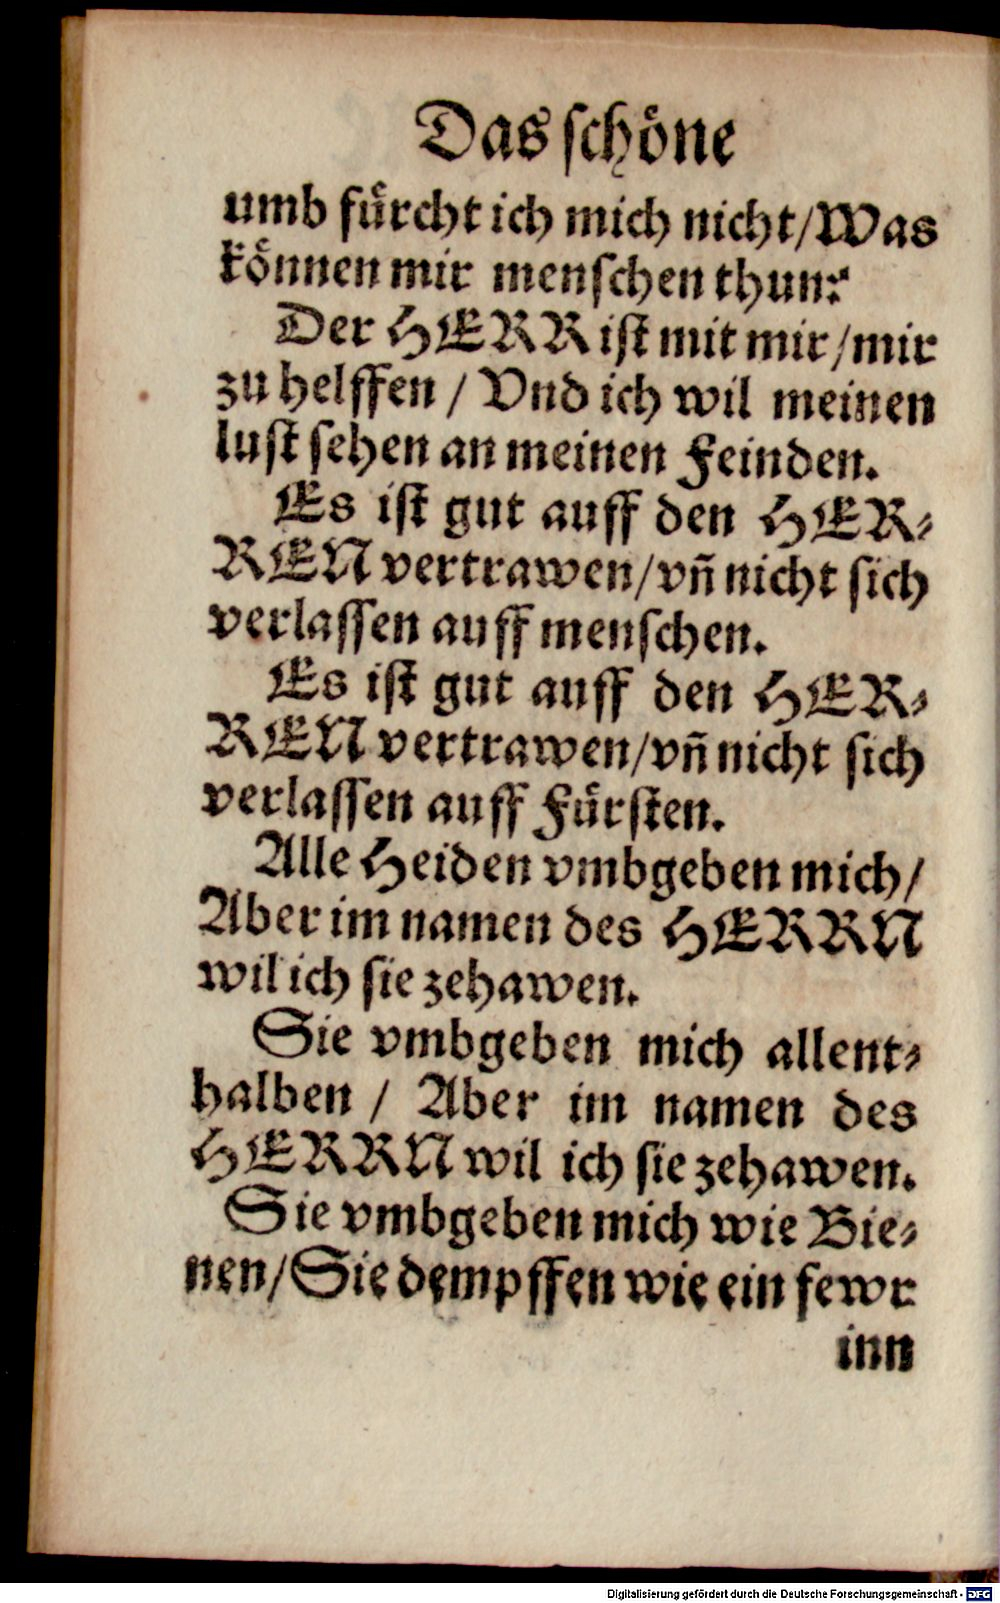 Das schöne
umb fürcht ich mich nicht/Was
können mir menschen thun?
Der HERR ist mit mir/mir
zu helffen / Vnd ich wil meinen
lust sehen an meinen Feinden.
Es ist gut auff den HER⸗
REN vertrawen/vñ nicht sich
verlassen auff menschen.
Es ist gut auff den HER⸗
REN vertrawen/vñ nicht sich
verlassen auff Fürsten.
Alle Heiden vmbgeben mich/
Aber im namen des HERRN
wil ich sie zehawen.
Sie vmbgeben mich allent⸗
halben / Aber im namen des
HERRN wil ich sie zehawen.
Sie vmbgeben mich wie Bie⸗
nen/Sie dempffen wie ein fewr
inn
Digitalisierung gefördert durch die Deutsche Forschungsgemeinschaft - DFG